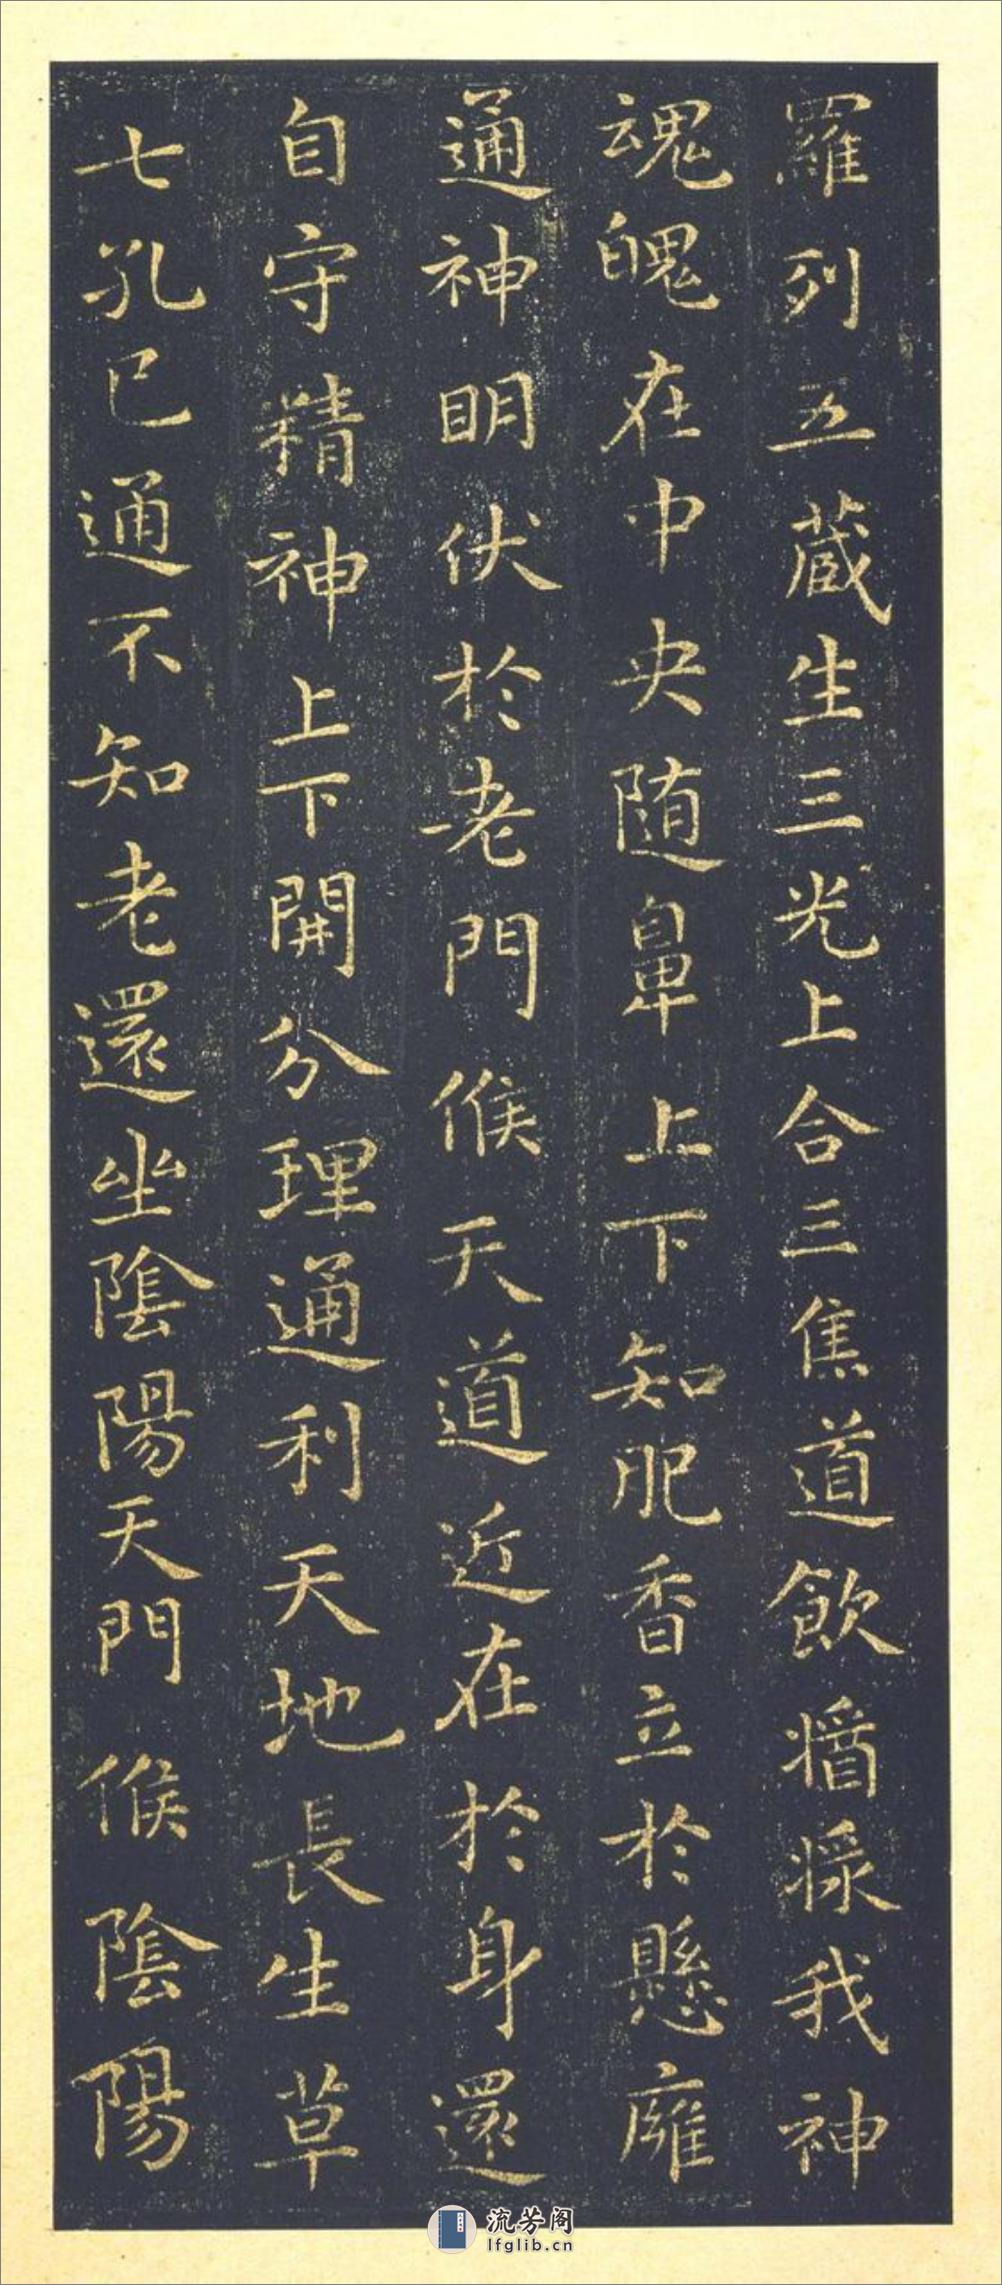 羅列五藏生三光上合三焦道飲醬漿我神
魂魄在中央随鼻上下知肥香立於懸廱
通神明伏於老門候天道近在於身還
自守精神上下開分理通利天地長生草
七孔已通不知老還坐陰陽天門候陰陽
流芳阁
lfglib.cn